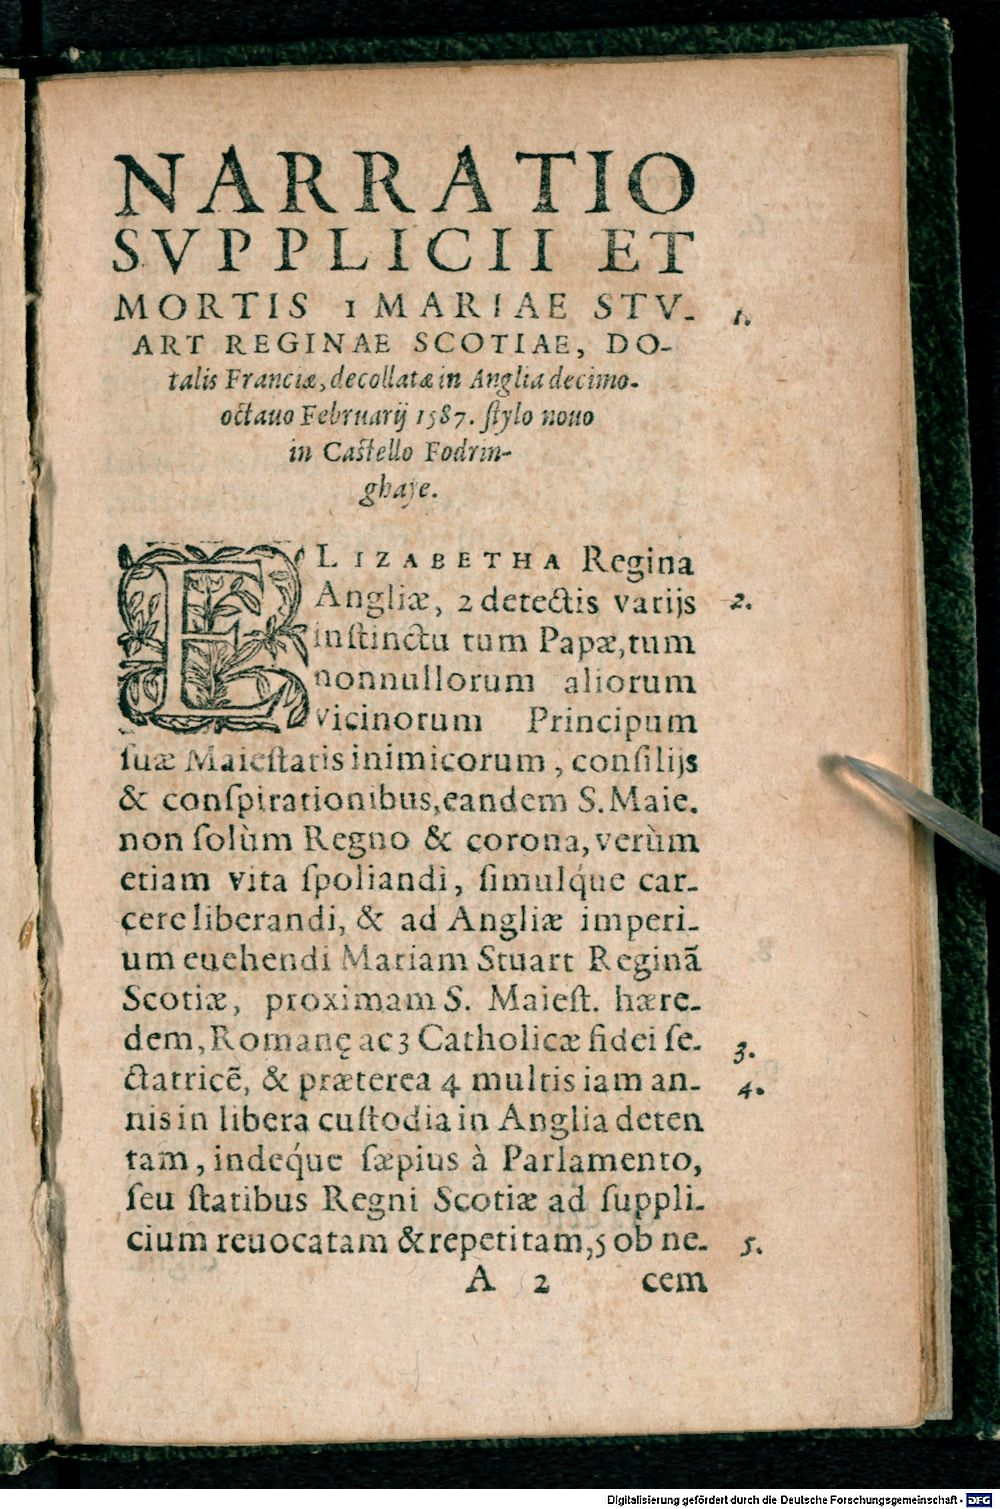 NARRATIO
SVPPLICII ET
MORTIS 1 MARIAE STV- 1.
ART REGINAE SCOTIAE, DO-
talis Franciæ, decollatæ in Anglia decimo-
octauo Februarij 1587. ſtylo nouo
in Caſtello Fodrin-
ghaye.
ELIZABETHA Regina
Angliæ, 2 detectis varijs 2.
inſtinctu tum Papæ, tum
nonnullorum aliorum
vicinorum Principum
ſuæ Maieſtatis inimicorum, conſilijs
& conſpirationibus, eandem S. Maie.
non ſolùm Regno & corona, verùm
etiam vita ſpoliandi, ſimulq́ue car-
cere liberandi, & ad Angliæ imperi-
um euehendi Mariam Stuart Reginã
Scotiæ, proximam S. Maieſt. hære-
dem, Romanę ac 3 Catholicæ fidei ſe- 3.
ctatricẽ, & præterea 4 multis iam an- 4.
nis in libera cuſtodia in Anglia deten
tam, indeq́ue ſæpius à Parlamento,
ſeu ſtatibus Regni Scotiæ ad ſuppli-
cium reuocatam & repetitam, 5 ob ne- 5.
A 2 cem
Digitalisierung gefördert durch die Deutsche Forschungsgemeinschaft - DFG